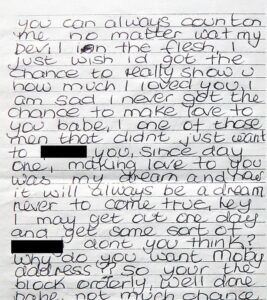 you can always count on
me no matter wat my
Devil on the flesh, I
just wish id got the
chance to really show u
how much I loved you, I
am sad I never got the
chance to make love to
you babe, I one of those
men that didnt just want
to you, since day
one, making love to you
was my dream and now
it will always be a dream
never to come true, hey
I may get out one day
and get some sort of
dont you think?
why do you want moby
address? so your the
block orderly, well done
babe, not much chance